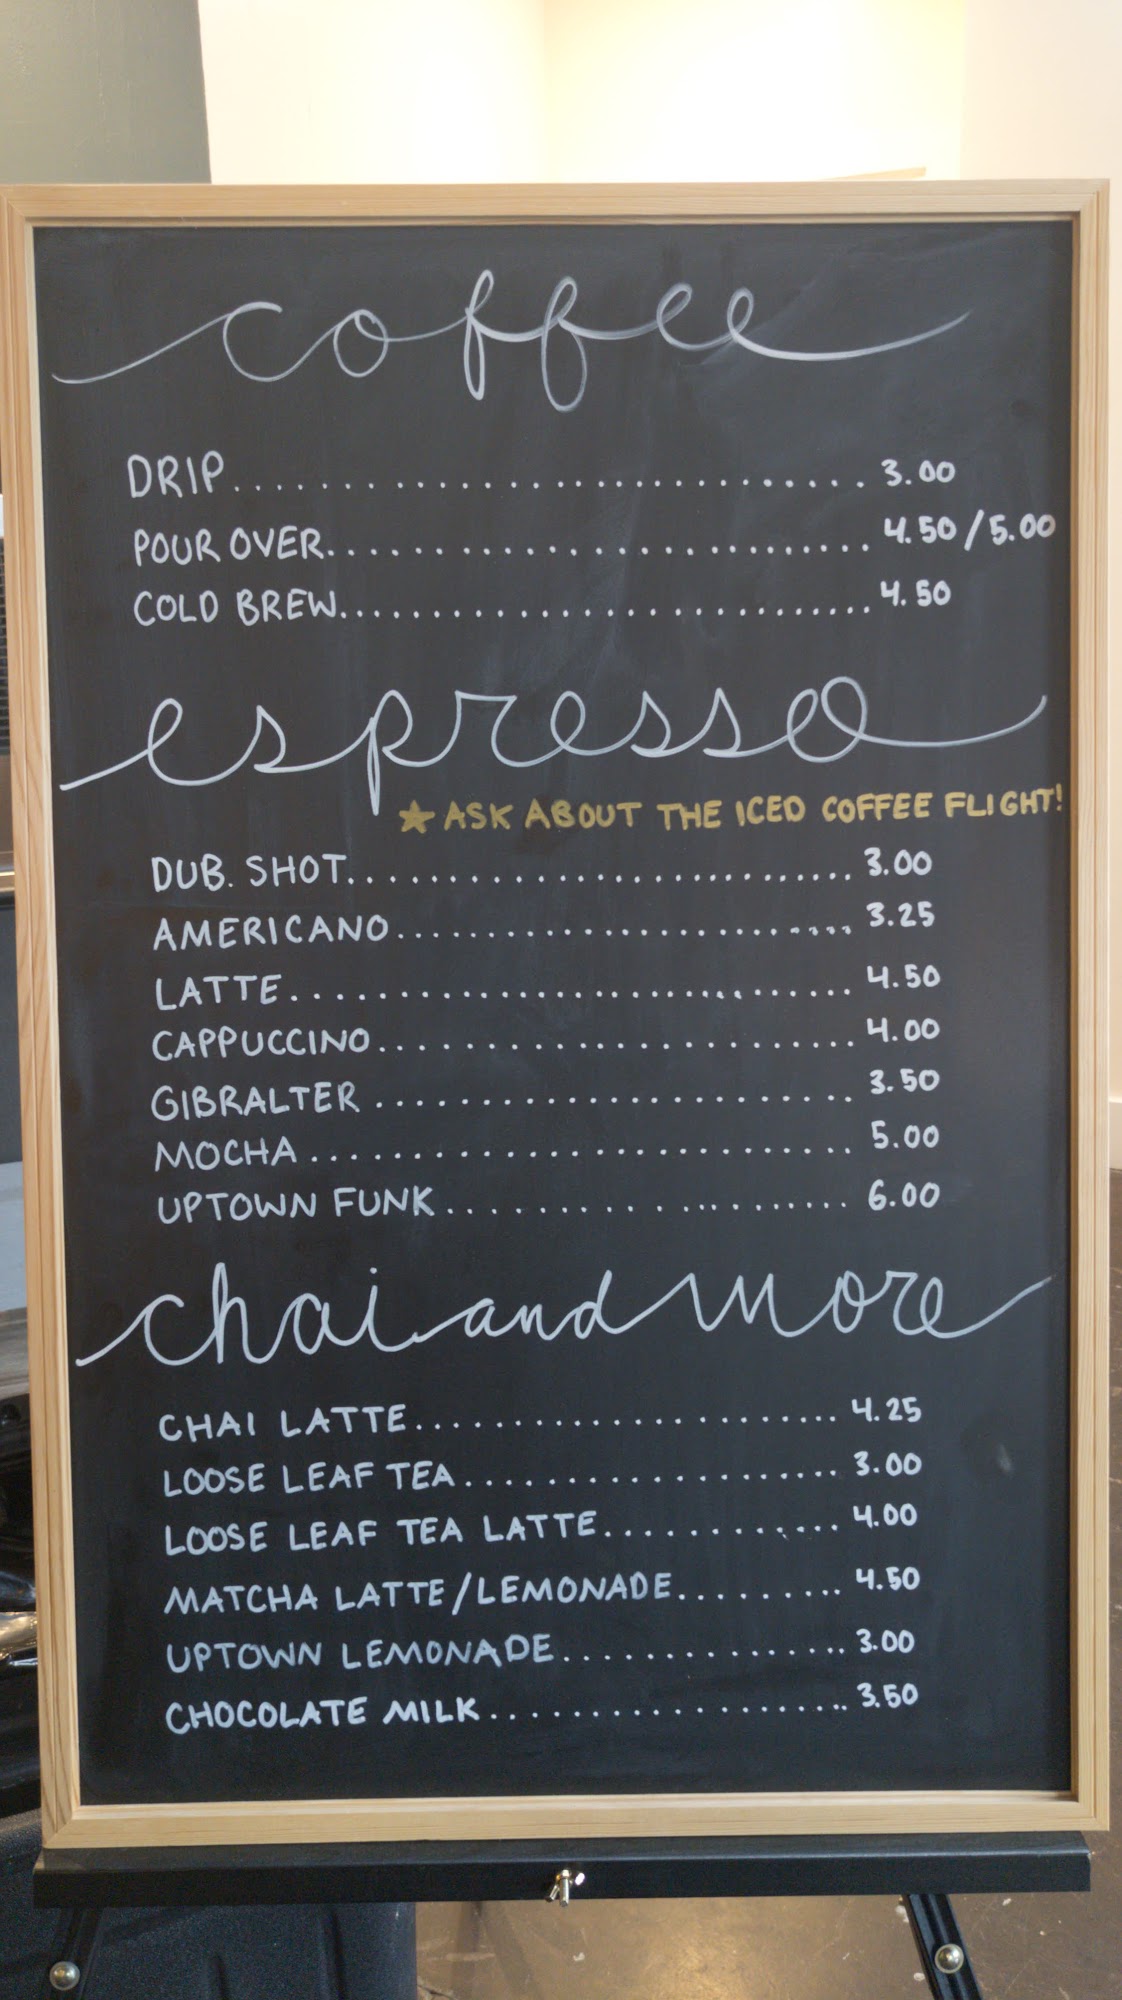 coffee
DRIP.............................. 3.00
POUR OVER............................ 4.50/5.00
COLD BREW............................ 4.50
espresso
★ ASK ABOUT THE ICED COFFEE FLIGHT!
DUB. SHOT........................... 3.00
AMERICANO........................ 3.25
LATTE.............................. 4.50
CAPPUCCINO....................... 4.00
GIBRALTER........................ 3.50
MOCHA............................ 5.00
UPTOWN FUNK.................... 6.00
chai and more
CHAI LATTE...................... 4.25
LOOSE LEAF TEA................... 3.00
LOOSE LEAF TEA LATTE............ 4.00
MATCHA LATTE/LEMONADE......... 4.50
UPTOWN LEMONADE.............. 3.00
CHOCOLATE MILK................... 3.50